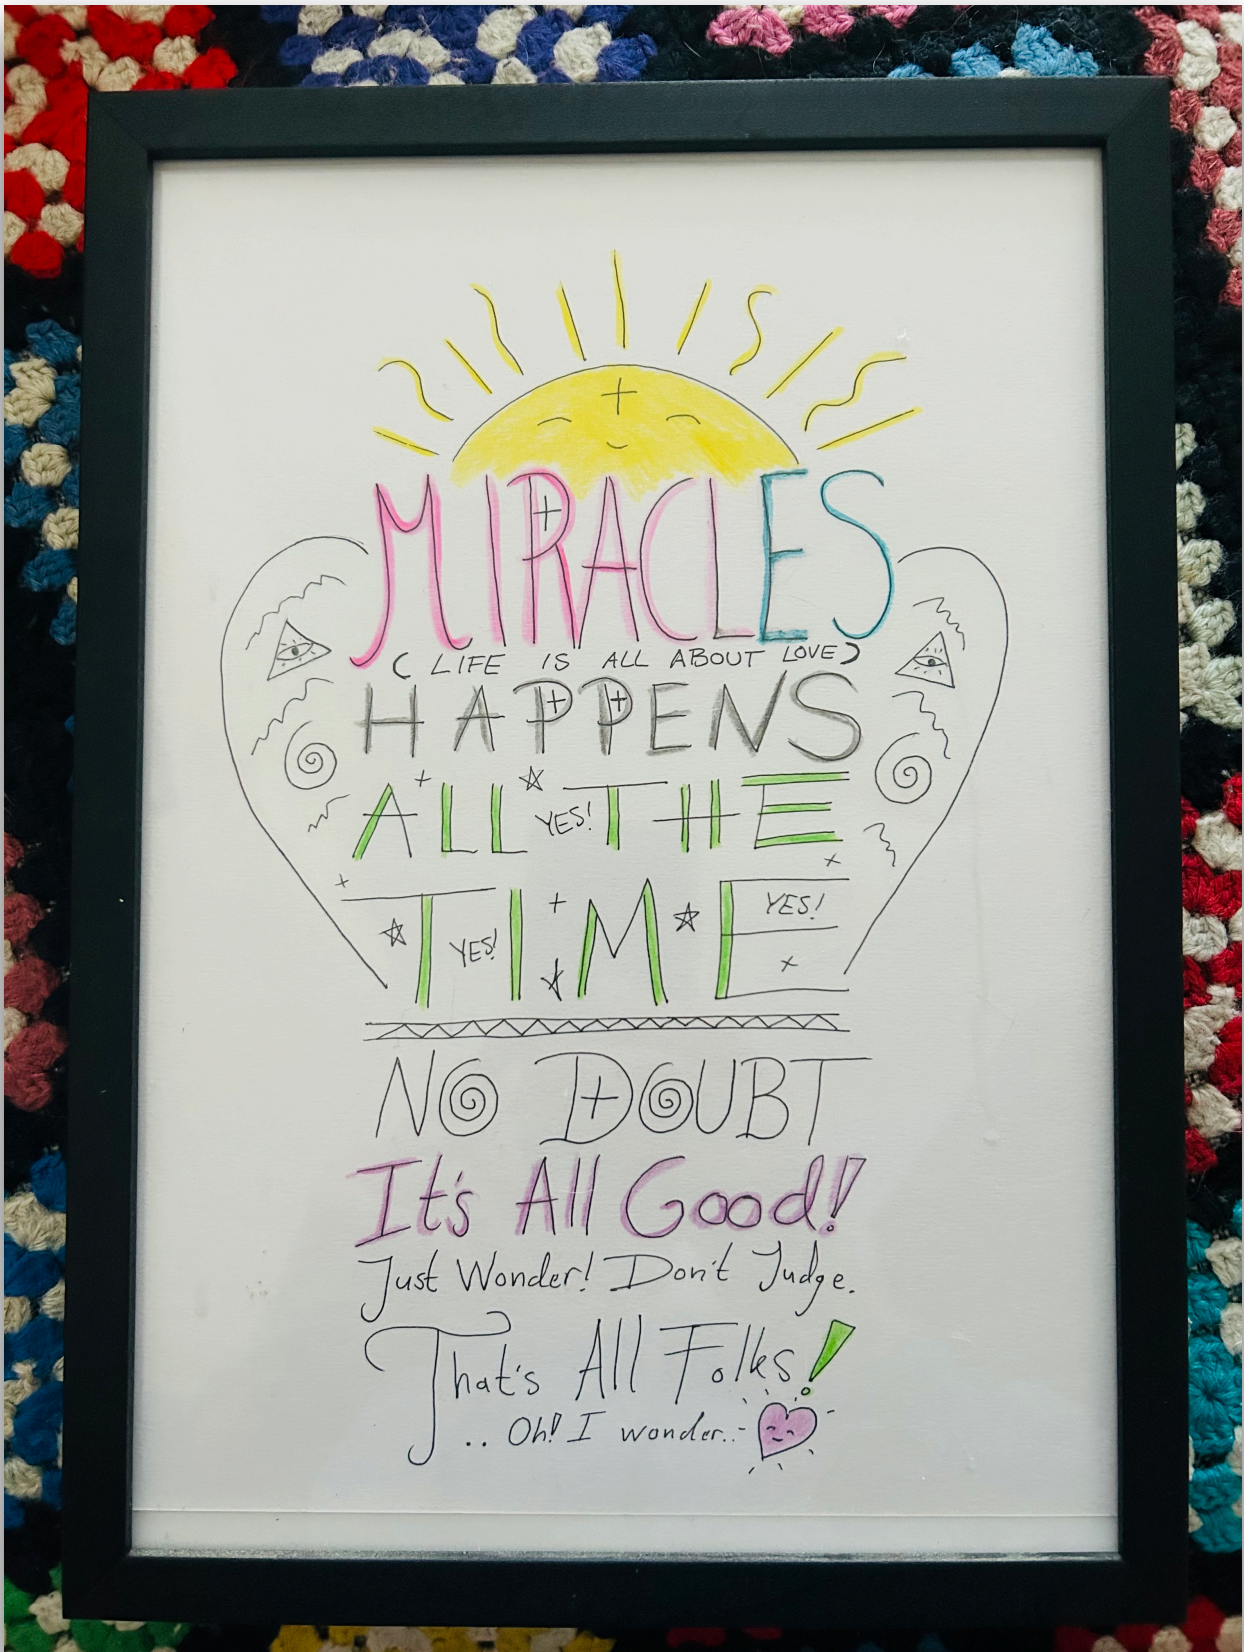 MIRACLES
( LIFE IS ALL ABOUT LOVE )
HAPPENS
ALL YES! THE
TIME YES! YES!
NO DOUBT
It's All Good!
Just Wonder! Don't Judge.
That's All Folks!
.. Oh! I wonder..